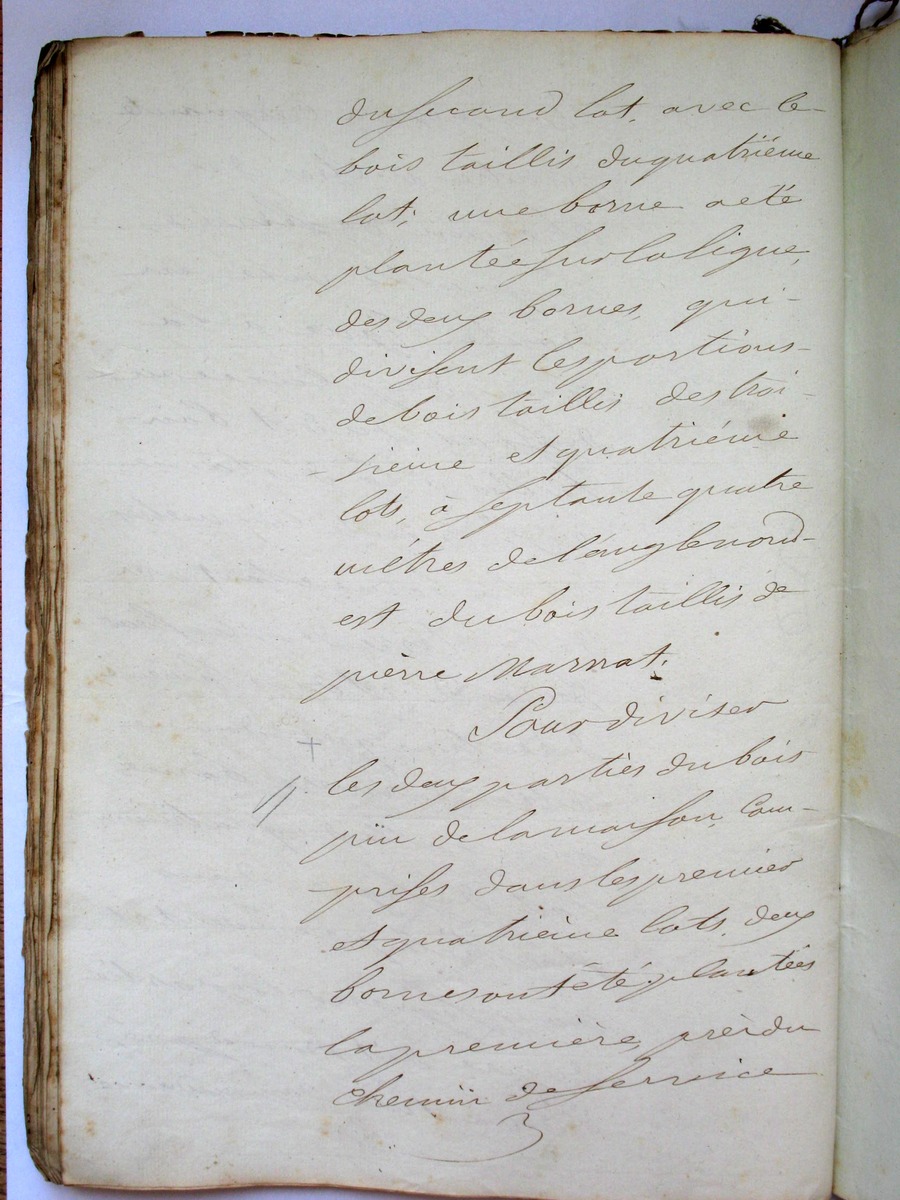 du second lot, avec le
bois taillis du quatrième
lot; une borne a été
plantée sur la ligne
des deux bornes qui
divisent les portions
de bois taillis des troi-
sieme et quatriéme
lots, à septante quatre
métres de l'angle nord-
est du bois taillis de
pierre Marnat.
Pour diviser
les deux parties du bois
pin de la maison, com-
prises dans les premier
et quatrième lots, deux
bornes ont été plantées
la première, près du
chemin de service